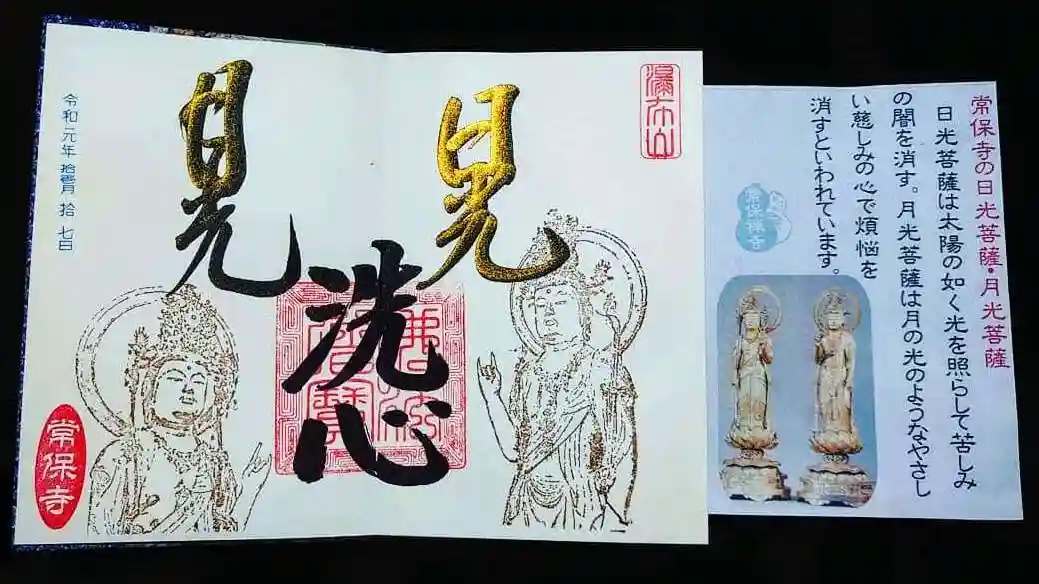 常保寺の日光菩薩・月光菩薩
日光菩薩は太陽の如く光を照らして苦しみ
の闇を消す。月光菩薩は月の光のようなやさし
い慈しみの心で煩悩を
消すといわれています。
常保禅寺
瀑布山
日光
洗心
佛法僧寶
月光
令和元年 拾壹月 拾七日
常保寺